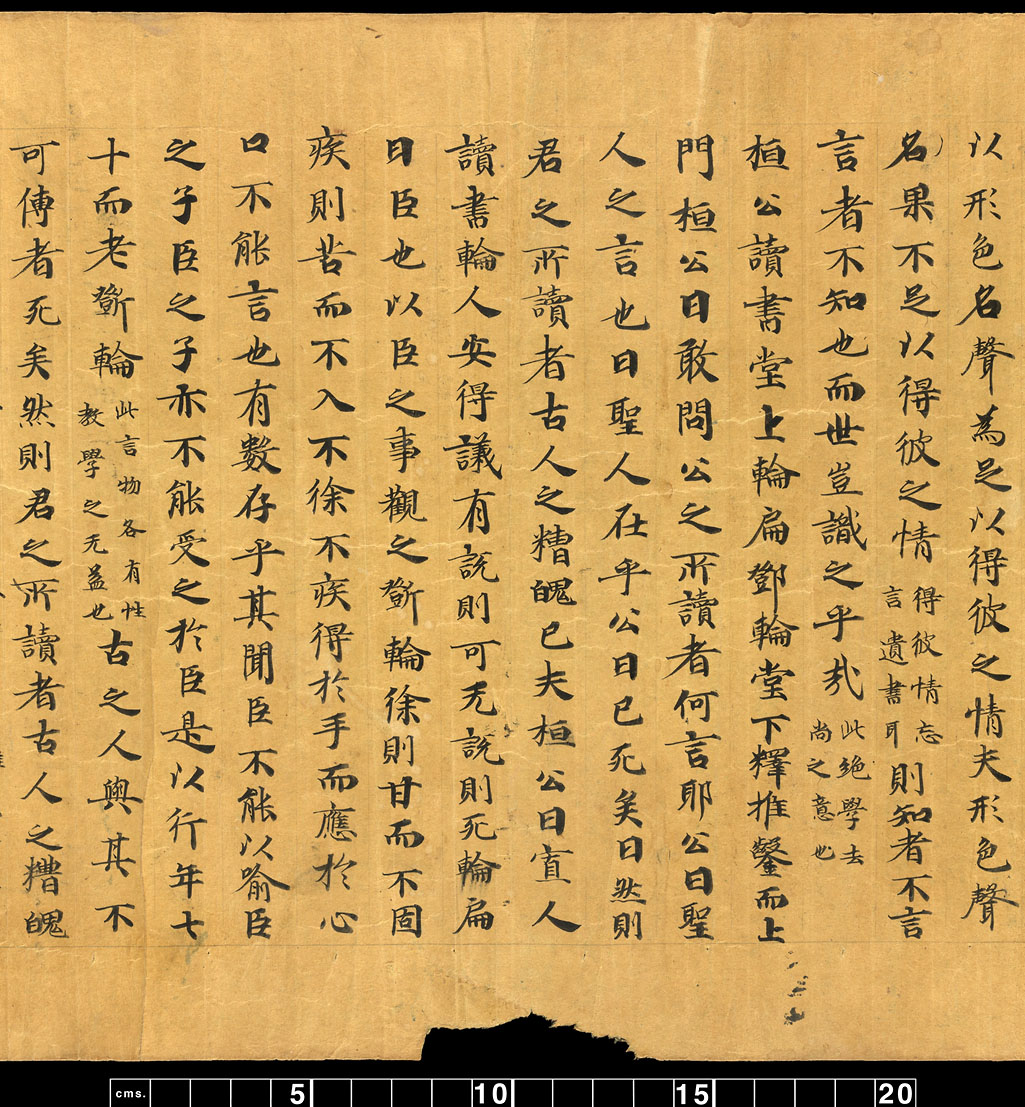 以形色名聲為足以得彼之情夫形色聲
名果不足以得彼之情得彼情忘言遺書耳則知者不言
言者不知也而世豈識之乎哉此絕學去尚之意也
桓公讀書堂上輪扁斵輪堂下釋推鑿而上
門桓公曰敢問公之所讀者何言耶公曰聖
人之言也曰聖人在乎公曰已死矣曰然則
君之所讀者古人之糟魄已夫桓公曰寡人
讀書輪人安得議有說則可无說則死輪扁
曰臣也以臣之事觀之斵輪徐則甘而不固
疾則苦而不入不徐不疾得於手而應於心
口不能言也有數存乎其聞臣不能以喻臣
之子臣之子亦不能受之於臣是以行年七
十而老斵輪此言物各有性教學之无益也古之人與其不
可傳者死矣然則君之所讀者古人之糟魄
cms. 5 10 15 20